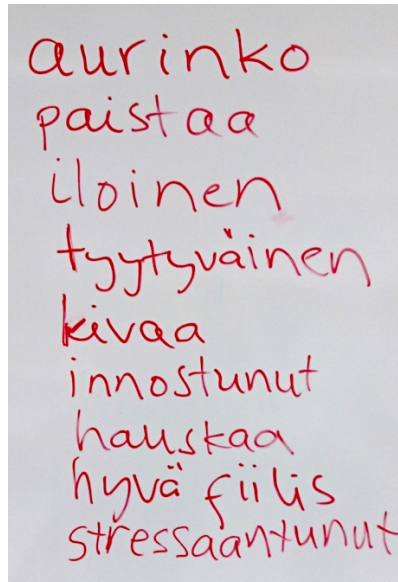 aurinko
paistaa
iloinen
tyytyväinen
kivaa
innostunut
hauskaa
hyvä fiilis
stressaantunut